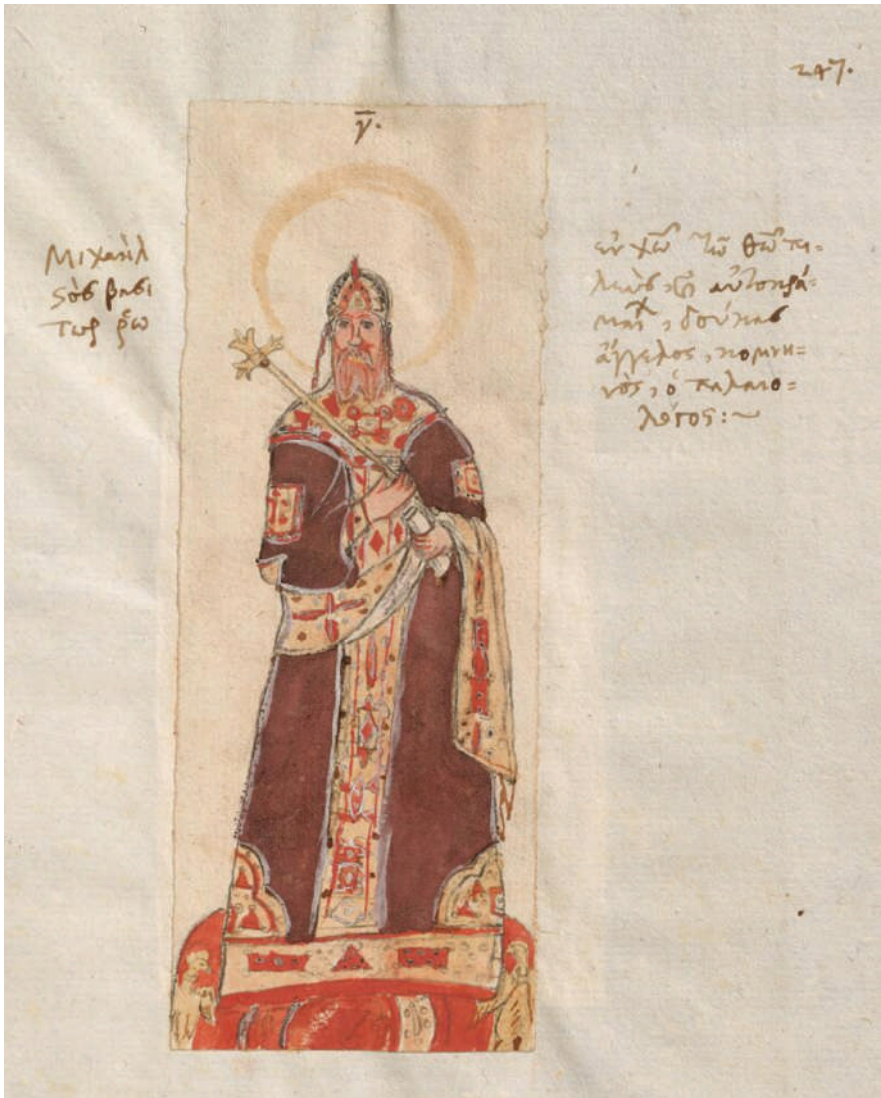 247.
γ̅.
Μιχαὴλ
ϛὸς βασι
τωρ ῥω
ἐν χω τῶ θω πι=
λεὺς, καὶ αὐτοκρά=
μαι, δούκας
ἄγγελος, κομνη=
νὸς, ὁ παλαιο=
λόγος:~